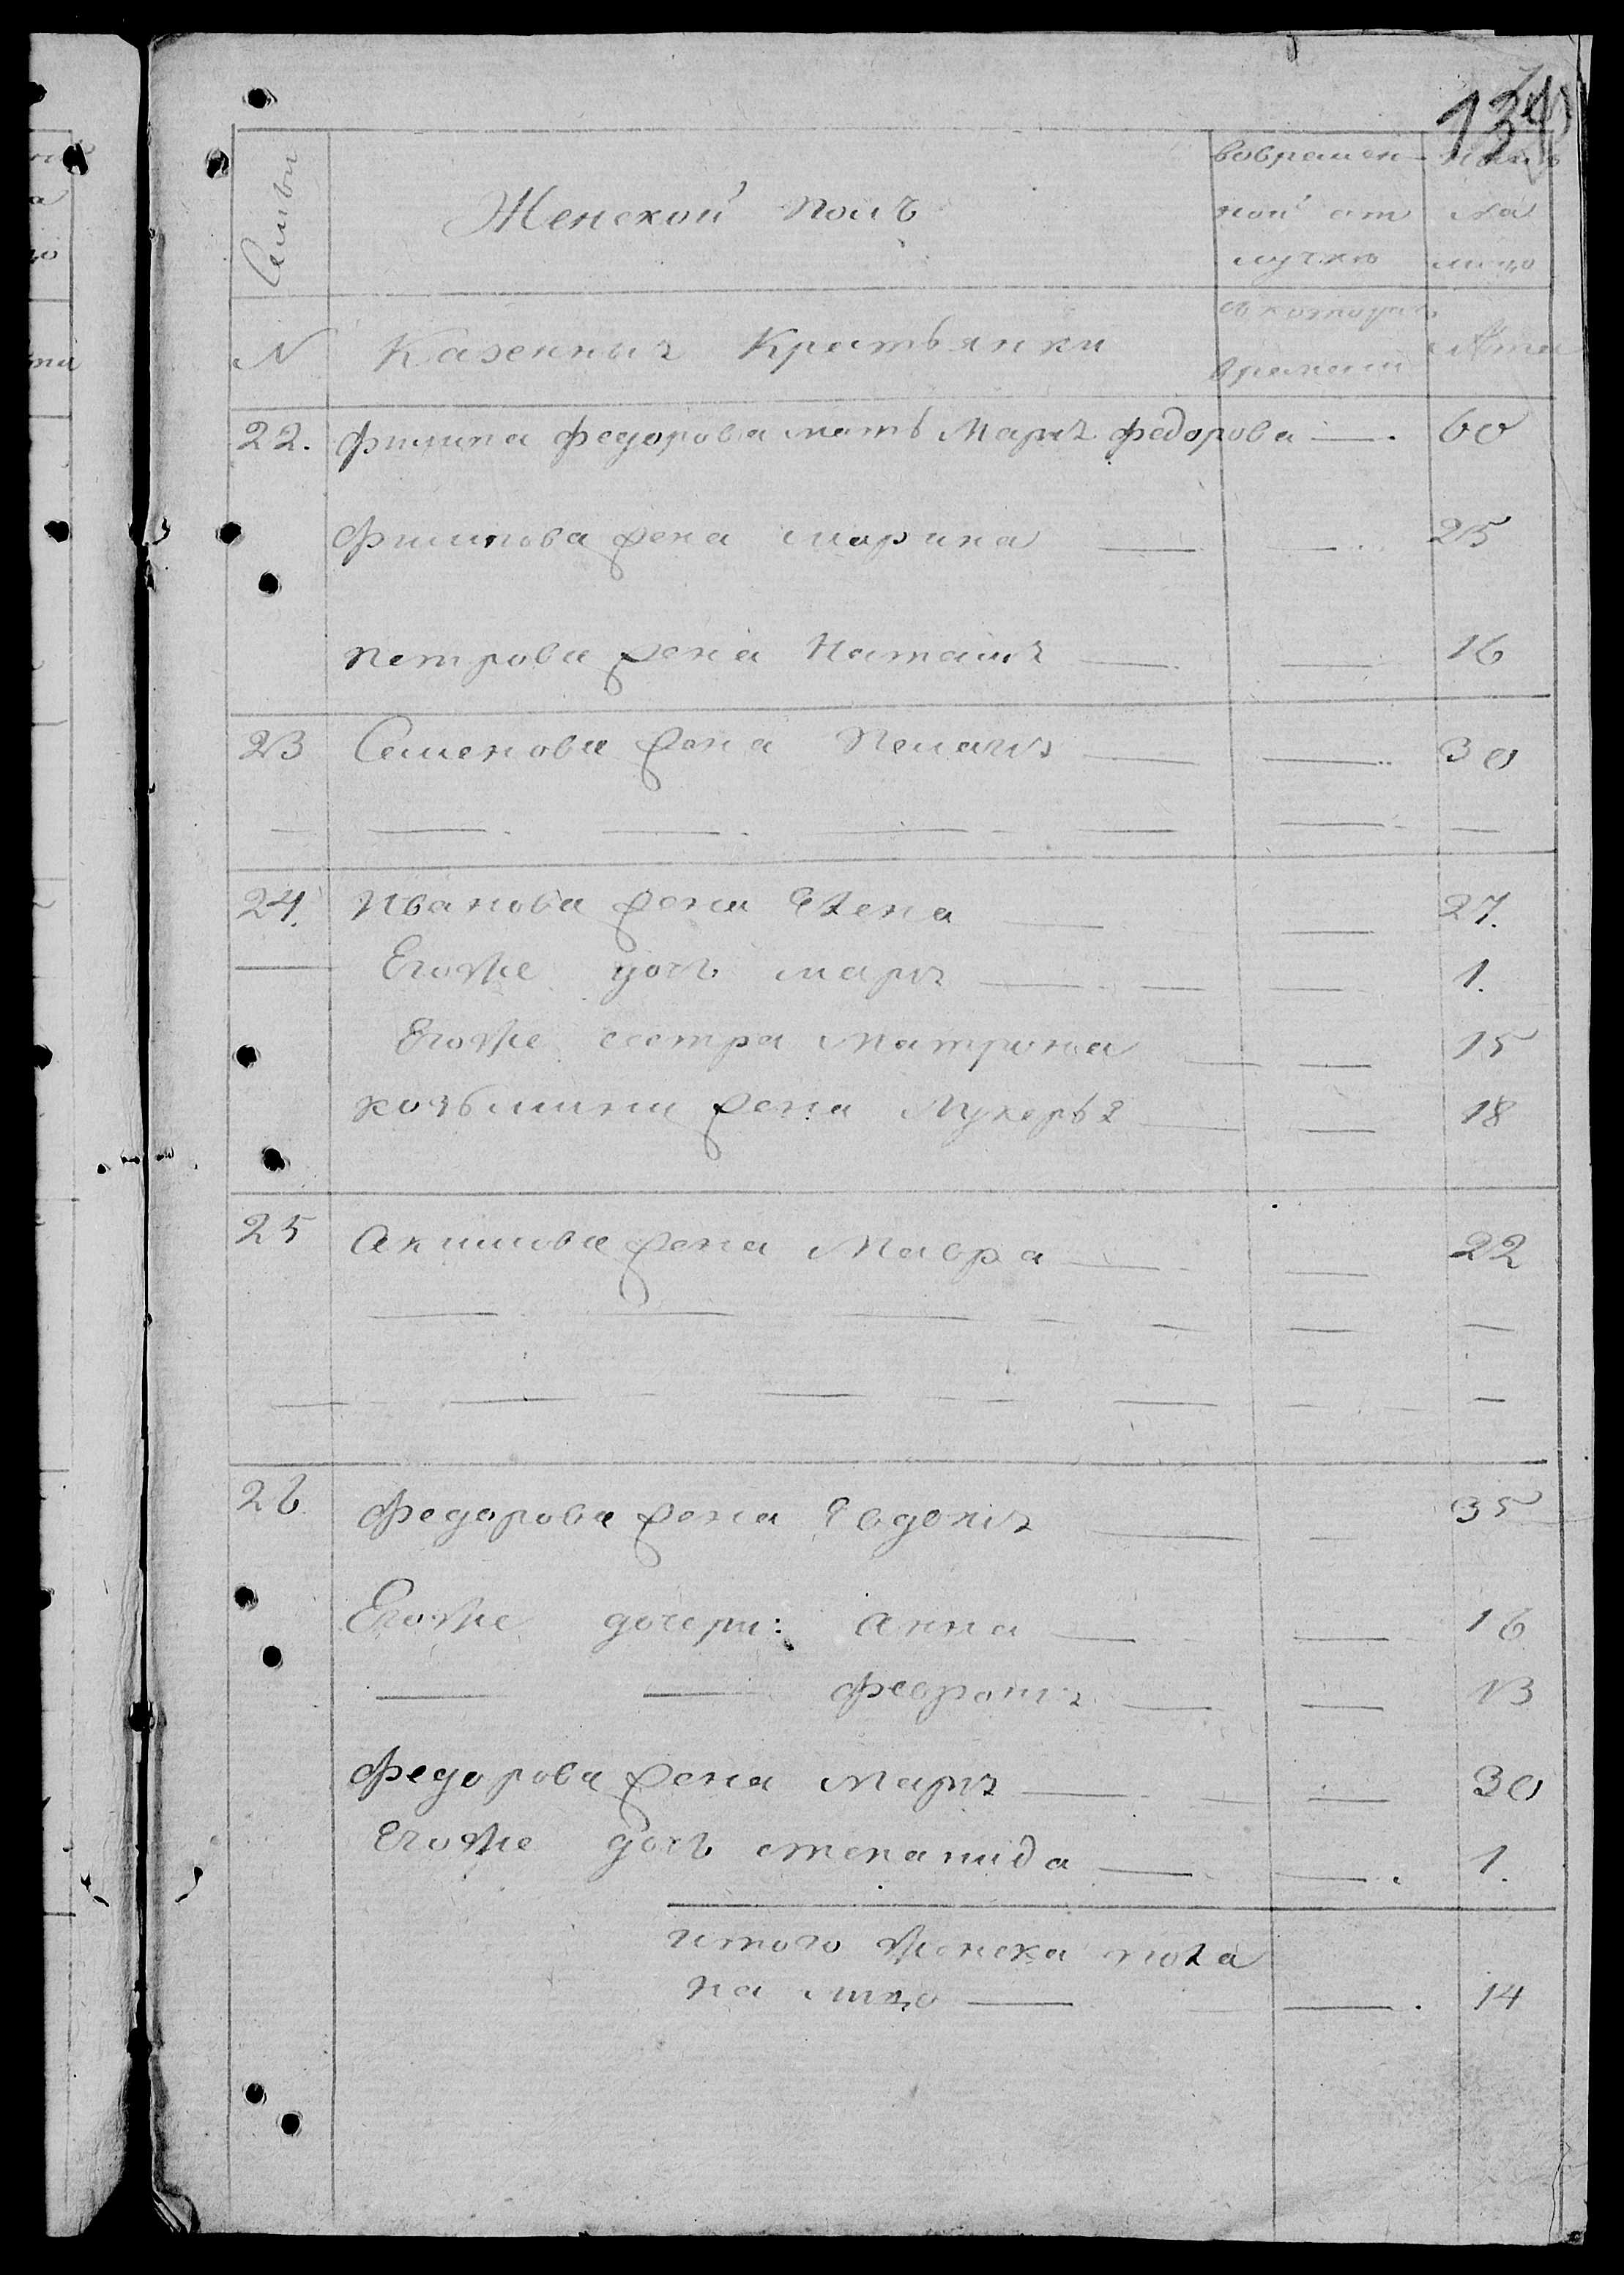 134
Семьи
Женской полъ
вовремен
ной от
лучке
ныне
на
лицо
N
Казенныя Крестьянки
с котораго
времени
Лета
22. Филипа Федорова мать Марья Федорова — 60
Филипова жена Марина — — 25
Петрова жена Наталия — — 16
23 Семенова жена Пелагия — — 30
24. Иванова жена Елена — — 27.
Егоже дочь марья — — 1.
Егоже сестра Матриона — — 15
козьмина жена Лукерья — — 18
25 Акимова жена Мавра — — 22
26 Федорова жена Евдокия — — 35
Егоже дочери: Анна — — 16
— — Феврония — — 13
Федорова жена Марья — — 30
Егоже дочь степанида — — 1.
итого женска пола
на лицо — — 14